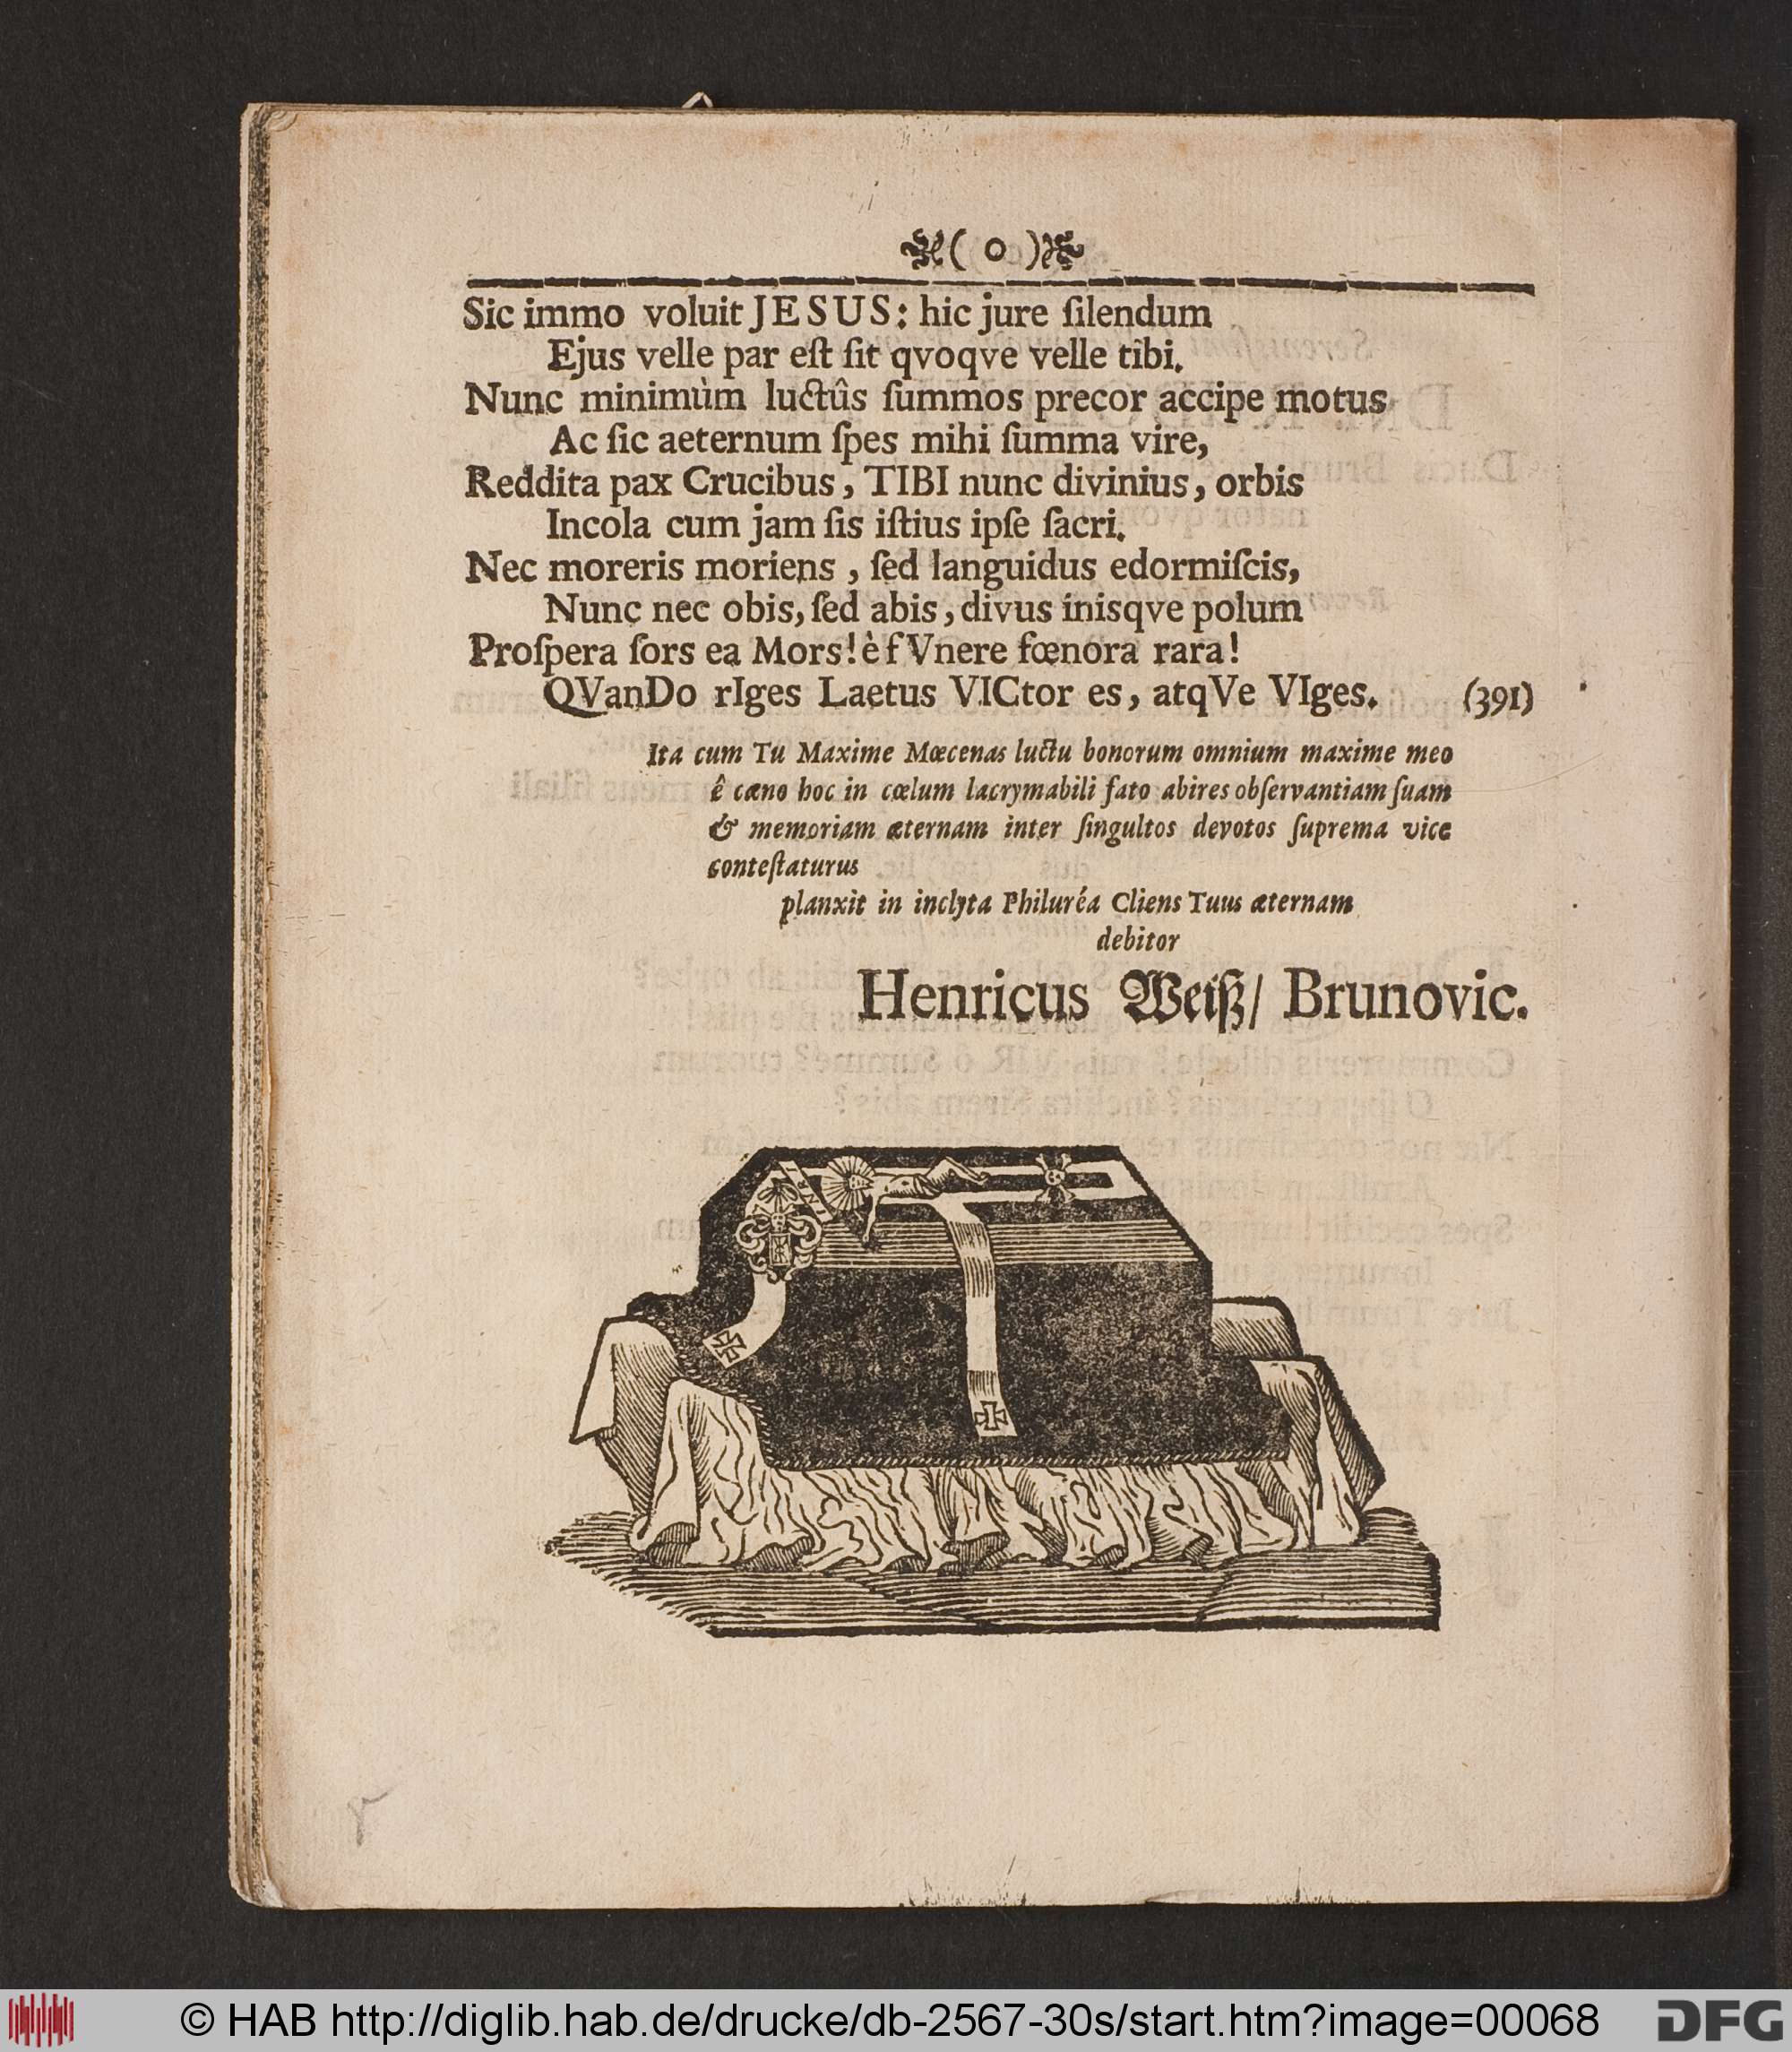 ( o )
Sic immo voluit JESUS: hic jure ſilendum
Ejus velle par eſt ſit qvoqve velle tibi.
Nunc minimùm luctûs ſummos precor accipe motus
Ac ſic aeternum ſpes mihi ſumma vire,
Reddita pax Crucibus, TIBI nunc divinius, orbis
Incola cum jam ſis iſtius ipſe ſacri.
Nec moreris moriens, ſed languidus edormiſcis,
Nunc nec obis, ſed abis, divus inisqve polum
Proſpera ſors ea Mors! è fVnere fœnora rara!
QVanDo rIges Laetus VICtor es, atqVe VIges. (391)
Ita cum Tu Maxime Mœcenas luctu bonorum omnium maxime meo
ê cæno hoc in cœlum lacrymabili fato abires obſervantiam ſuam
& memoriam æternam inter ſingultos devotos ſuprema vice
conteſtaturus
planxit in inclyta Philuréa Cliens Tuus æternam
debitor
Henricus Weiß/ Brunovic.
INRI
© HAB http://diglib.hab.de/drucke/db-2567-30s/start.htm?image=00068
DFG